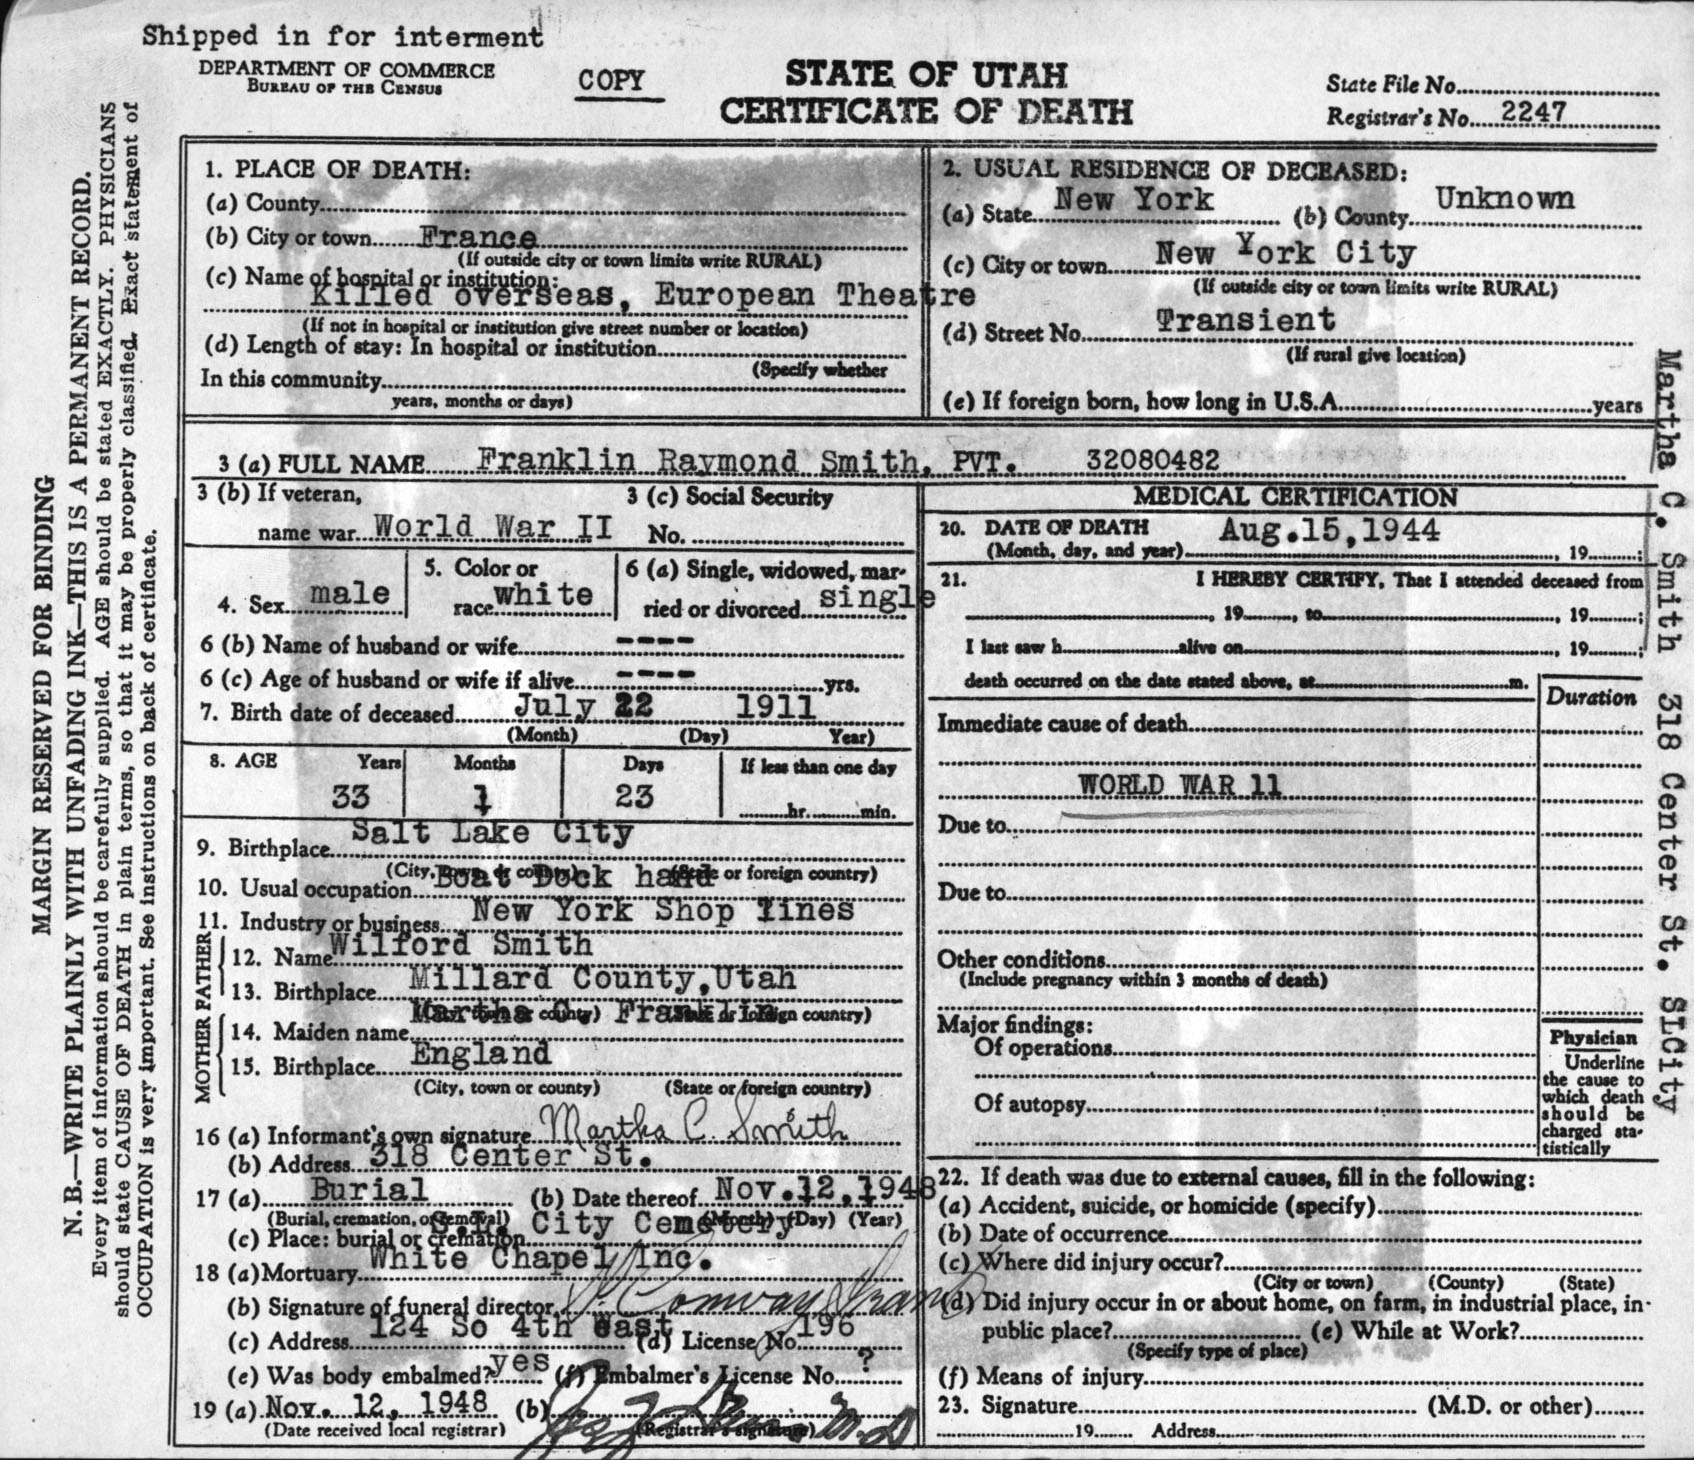 Shipped in for interment
DEPARTMENT OF COMMERCE
BUREAU OF THE CENSUS
COPY
STATE OF UTAH
CERTIFICATE OF DEATH
State File No.
Registrar's No. 2247
MARGIN RESERVED FOR BINDING
N. B.—WRITE PLAINLY WITH UNFADING INK—THIS IS A PERMANENT RECORD.
Every item of information should be carefully supplied. AGE should be stated EXACTLY. PHYSICIANS
should state CAUSE OF DEATH in plain terms, so that it may be properly classified. Exact statement of
OCCUPATION is very important. See instructions on back of certificate.
1. PLACE OF DEATH:
(a) County
(b) City or town France
(If outside city or town limits write RURAL)
(c) Name of hospital or institution:
Killed overseas, European Theatre
(If not in hospital or institution give street number or location)
(d) Length of stay: In hospital or institution
(Specify whether
In this community
years, months or days)
2. USUAL RESIDENCE OF DECEASED:
(a) State New York (b) County Unknown
(c) City or town New York City
(If outside city or town limits write RURAL)
(d) Street No. Transient
(If rural give location)
(e) If foreign born, how long in U.S.A. years
3 (a) FULL NAME Franklin Raymond Smith, PVT. 32080482
3 (b) If veteran,
name war World War II
3 (c) Social Security
No.
4. Sex male
5. Color or
race white
6 (a) Single, widowed, mar-
ried or divorced single
6 (b) Name of husband or wife ----
6 (c) Age of husband or wife if alive ---- yrs.
7. Birth date of deceased July 22 1911
(Month) (Day) Year)
8. AGE Years Months Days If less than one day
33 1 23 hr. min.
9. Birthplace Salt Lake City
(City, town, or county) (State or foreign country)
10. Usual occupation Boat Dock hand
11. Industry or business New York Shop lines
FATHER
12. Name Wilford Smith
13. Birthplace Millard County, Utah
(City, town or county) (State or foreign country)
MOTHER
14. Maiden name Martha C. Franklin
15. Birthplace England
(City, town or county) (State or foreign country)
16 (a) Informant's own signature Martha C. Smith
(b) Address 318 Center St.
17 (a) Burial (b) Date thereof Nov. 12, 1948
(Burial, cremation, or removal) (Month) (Day) (Year)
(c) Place: burial or cremation S.L. City Cemetery
18 (a) Mortuary White Chapel Inc.
(b) Signature of funeral director
(c) Address 124 So 4th East (d) License No. 196
(e) Was body embalmed? yes (f) Embalmer's License No. ?
19 (a) Nov. 12, 1948 (b) M.D
(Date received local registrar) (Registrar's signature)
MEDICAL CERTIFICATION
20. DATE OF DEATH Aug.15,1944
(Month, day, and year) , 19 ;
21. I HEREBY CERTIFY, That I attended deceased from
, 19 , to , 19 ;
I last saw h alive on , 19 ;
death occurred on the date stated above, at m.
Duration
Immediate cause of death
WORLD WAR 11
Due to
Due to
Other conditions
(Include pregnancy within 3 months of death)
Major findings:
Of operations
Of autopsy
Physician
Underline
the cause to
which death
should be
charged sta-
tistically
22. If death was due to external causes, fill in the following:
(a) Accident, suicide, or homicide (specify)
(b) Date of occurrence
(c) Where did injury occur?
(City or town) (County) (State)
(d) Did injury occur in or about home, on farm, in industrial place, in
public place? (e) While at Work?
(Specify type of place)
(f) Means of injury
23. Signature (M.D. or other)
19 Address
Martha C. Smith 318 Center St. SlCity